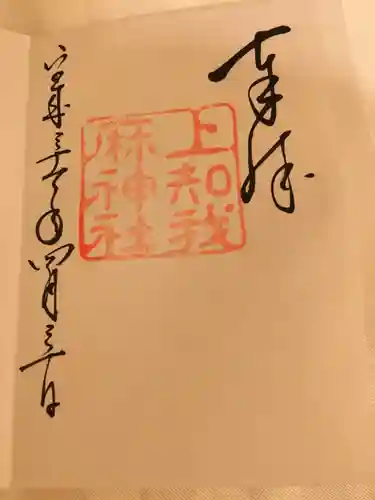 奉拝
上知我
麻神社
平成三十年四月三日